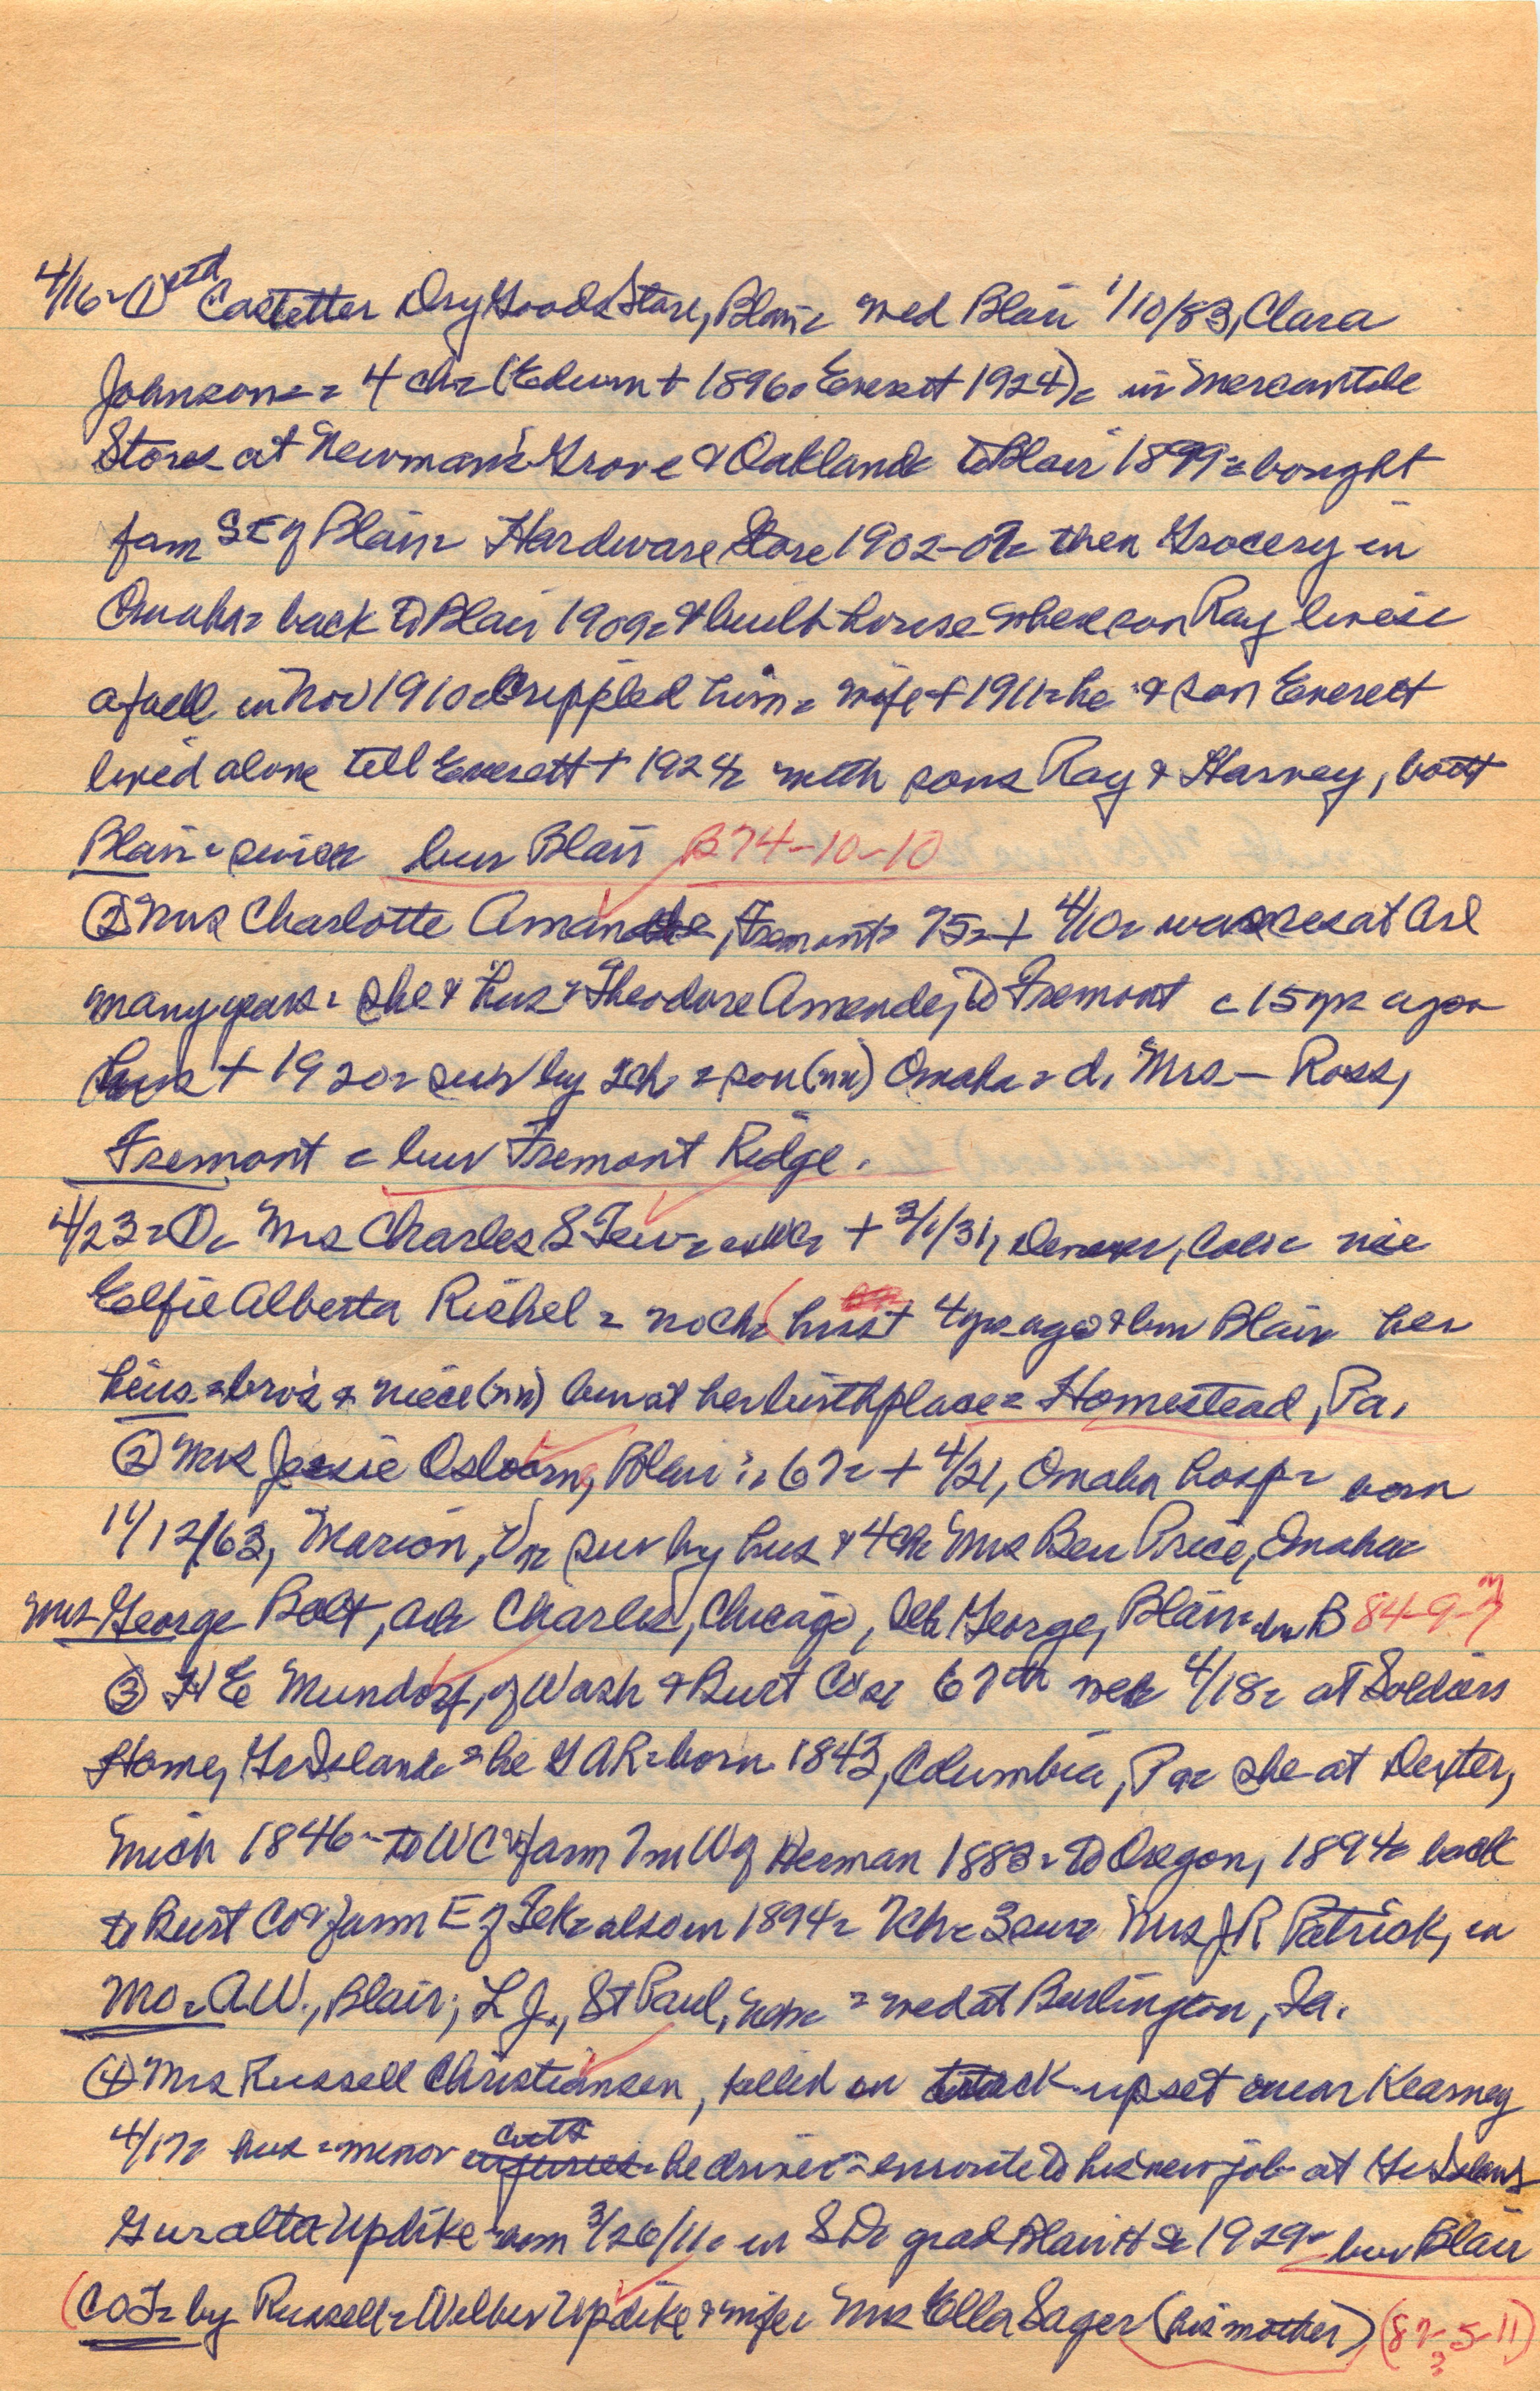 4/16- ① ctd Castetter Dry Goods Store, Blair- med Blair 1/10/83, Clara
Johnson- - 4 ch- (Edwin + 1896- Everett 1924)- in mercantile
Stores at Newman's Grove & Oakland- to Blair 1899- bought
farm SE of Blair- Hardware Store 1902-07- then Grocery in
Omaha- back to Blair 1909- & built house where son Ray lives-
a fall in Nov 1910- crippled him- wife + 1911- he & son Everett
lived alone till Everett + 1924- with sons Ray & Harvey, both
Blair- bur Blair B74-10-10
② Mrs Charlotte Amende, Fremont- 75- + 4/10- was res at Arl
many years- she & hus- Theodore Amende, to Fremont c 15 yrs ago-
hus + 1920- surv by 2ch- son (nn) Omaha- d. Mrs - Ross,
Fremont - bur Fremont Ridge.
4/23- ①- Mrs Charles S - ex WC- + 3/1/31, Denver, Colo- née
Effie Alberta Riehel - no ch- (hus + 4 yrs ago & bur Blair her
heirs- bro's & niece (nn) bur at her birthplace- Homestead, Pa.
② Mrs Jessie Osborn, Blair - 67- + 4/21, Omaha hosp- born
11/12/63, Marion, In- surv by hus & 4ch- Mrs Ben Price, Omaha-
Mrs George Bolt, Charles, Chicago, George, Blair- bur B 84-9-7
③ H E Mundorf, of Wash & Burt Co's- 67th 4/18- at Soldiers
Home, Gr Island- he GAR- born 1843, Columbia, Pa- she at Dexter,
Mich 1846- to WC & farm 7m W of Herman 1883- to Oregon, 1894- back
to Burt Co & farm E of Tek- also in 1894- 7ch- 3 surv- Mrs J R Patrick, in
Mo- A.W., Blair; L J., St Paul, - med at Burlington, Ia.
④ Mrs Russell Christiansen, killed on truck upset near Kearney
4/17- hus- minor injuries cuts- he driver- enroute to his new job at Gr Island
Updike- born 3/26/11- in SD- grad Blair HS- 1929- bur Blair
(COT- by Russell- Wilber Updike & wife- Mrs Ella Sager (his mother) (87-5-11)
?